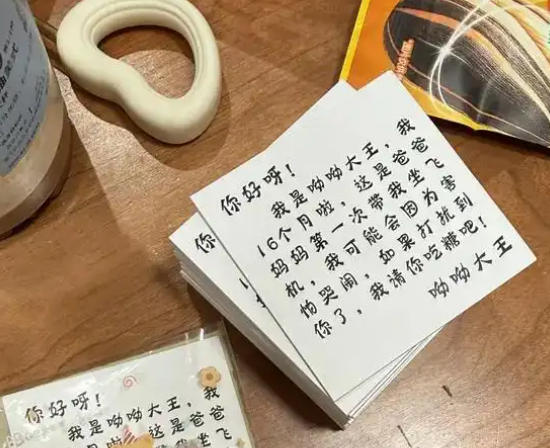 你好呀！
我是呦呦大王，我
16个月啦，这是爸爸
妈妈第一次带我坐飞
机，我可能会因为害
怕哭闹，如果打扰到
你了，我请你吃糖吧！
呦呦大王
你
你好呀！
我是呦呦大王，我
这是爸爸